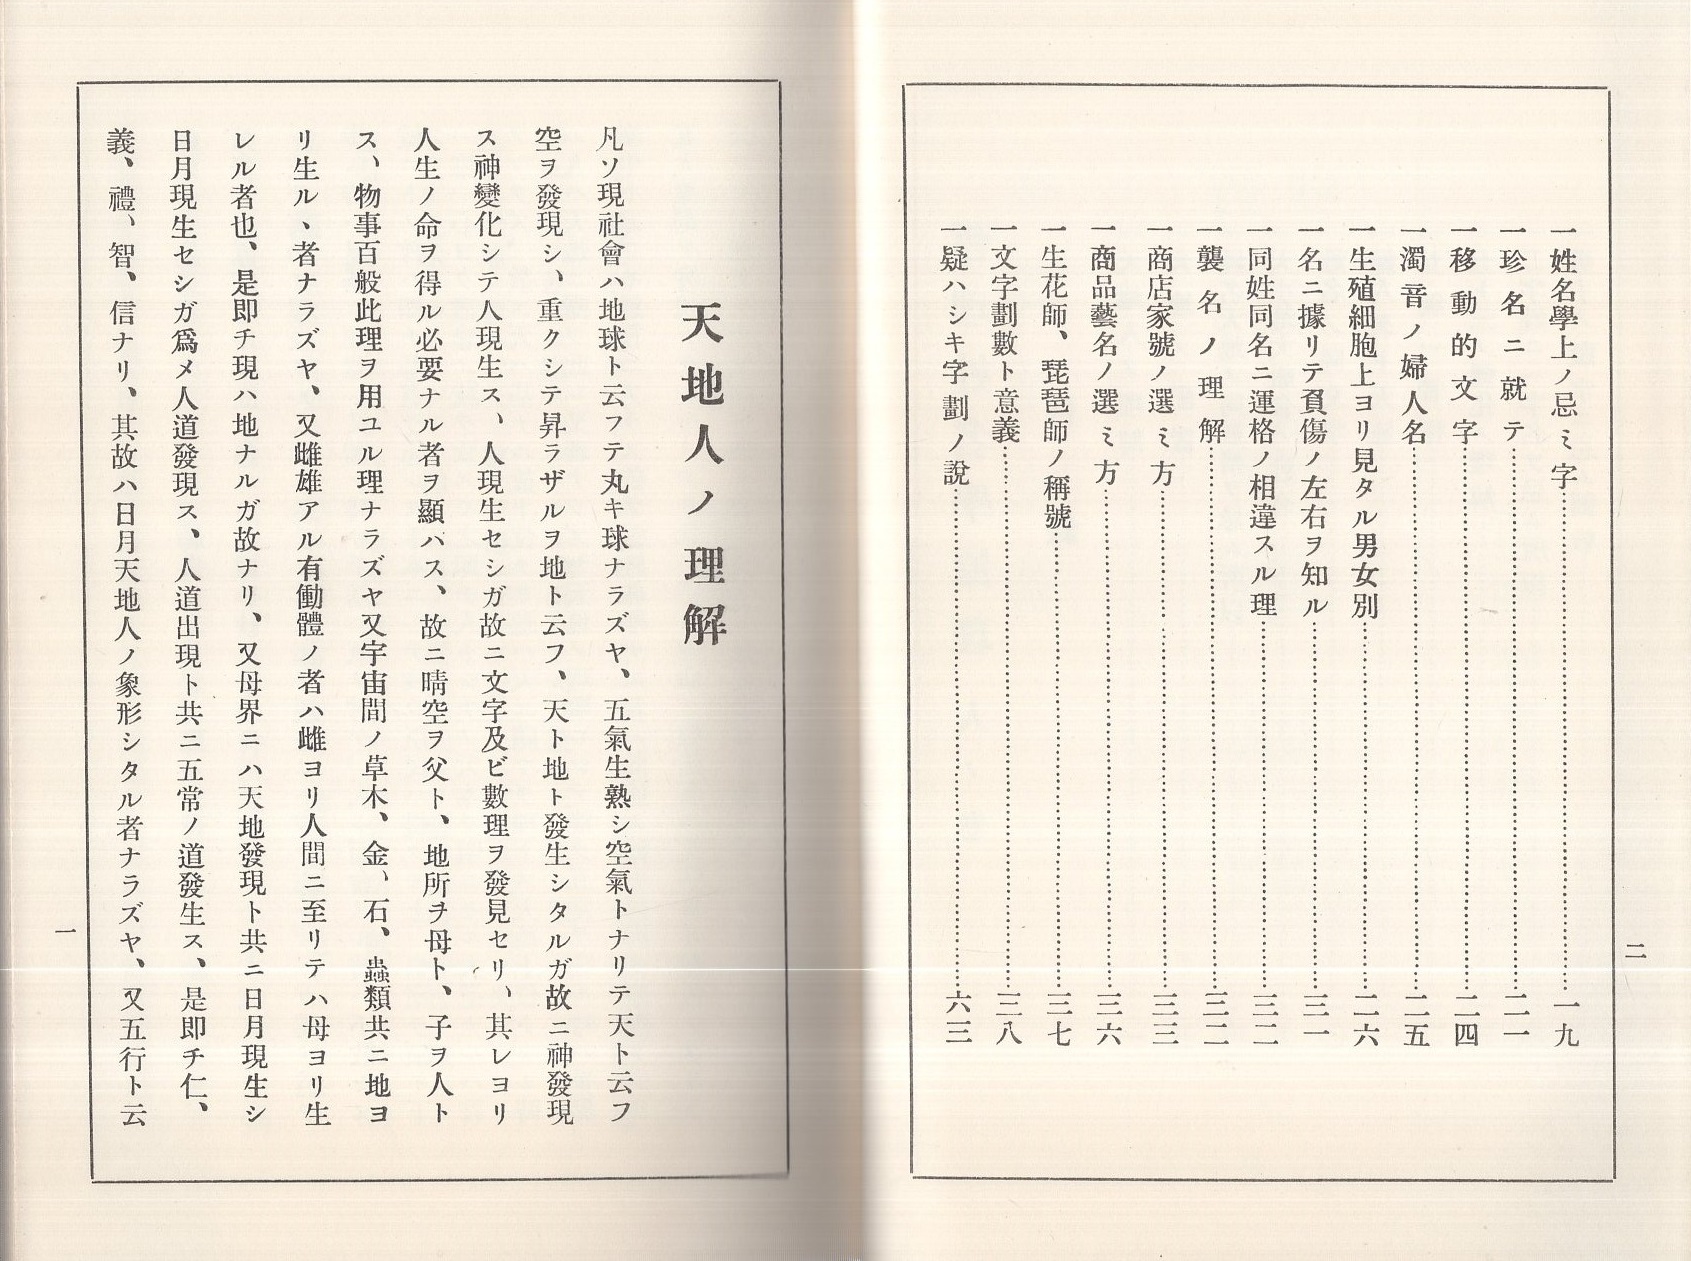 二
一姓名學上ノ忌ミ字……一九
一珍名ニ就テ……二一
一移動的文字……二四
一濁音ノ婦人名……二五
一生殖細胞上ヨリ見タル男女別……二六
一名ニ據リテ負傷ノ左右ヲ知ル……三一
一同姓同名ニ運格ノ相違スル理……三二
一襲名ノ理解……三二
一商店家號ノ選ミ方……三三
一商品藝名ノ選ミ方……三六
一生花師、琵琶師ノ稱號……三七
一文字劃數ト意義……三八
一疑ハシキ字劃ノ說……六三
天地人ノ理解
凡ソ現社會ハ地球ト云フテ丸キ球ナラズヤ、五氣生熟シ空氣トナリテ天ト云フ
空ヲ發現シ、重クシテ昇ラザルヲ地ト云フ、天ト地ト發生シタルガ故ニ神發現
ス神變化シテ人現生ス、人現生セシガ故ニ文字及ビ數理ヲ發見セリ、其レヨリ
人生ノ命ヲ得ル必要ナル者ヲ顯ハス、故ニ晴空ヲ父ト、地所ヲ母ト、子ヲ人ト
ス、物事百般此理ヲ用ユル理ナラズヤ又宇宙間ノ草木、金、石、蟲類共ニ地ヨ
リ生ル、者ナラズヤ、又雌雄アル有働體ノ者ハ雌ヨリ人間ニ至リテハ母ヨリ生
レル者也、是即チ現ハ地ナルガ故ナリ、又母界ニハ天地發現ト共ニ日月現生シ
日月現生セシガ爲メ人道發現ス、人道出現ト共ニ五常ノ道發生ス、是即チ仁、
義、禮、智、信ナリ、其故ハ日月天地人ノ象形シタル者ナラズヤ、又五行ト云
一